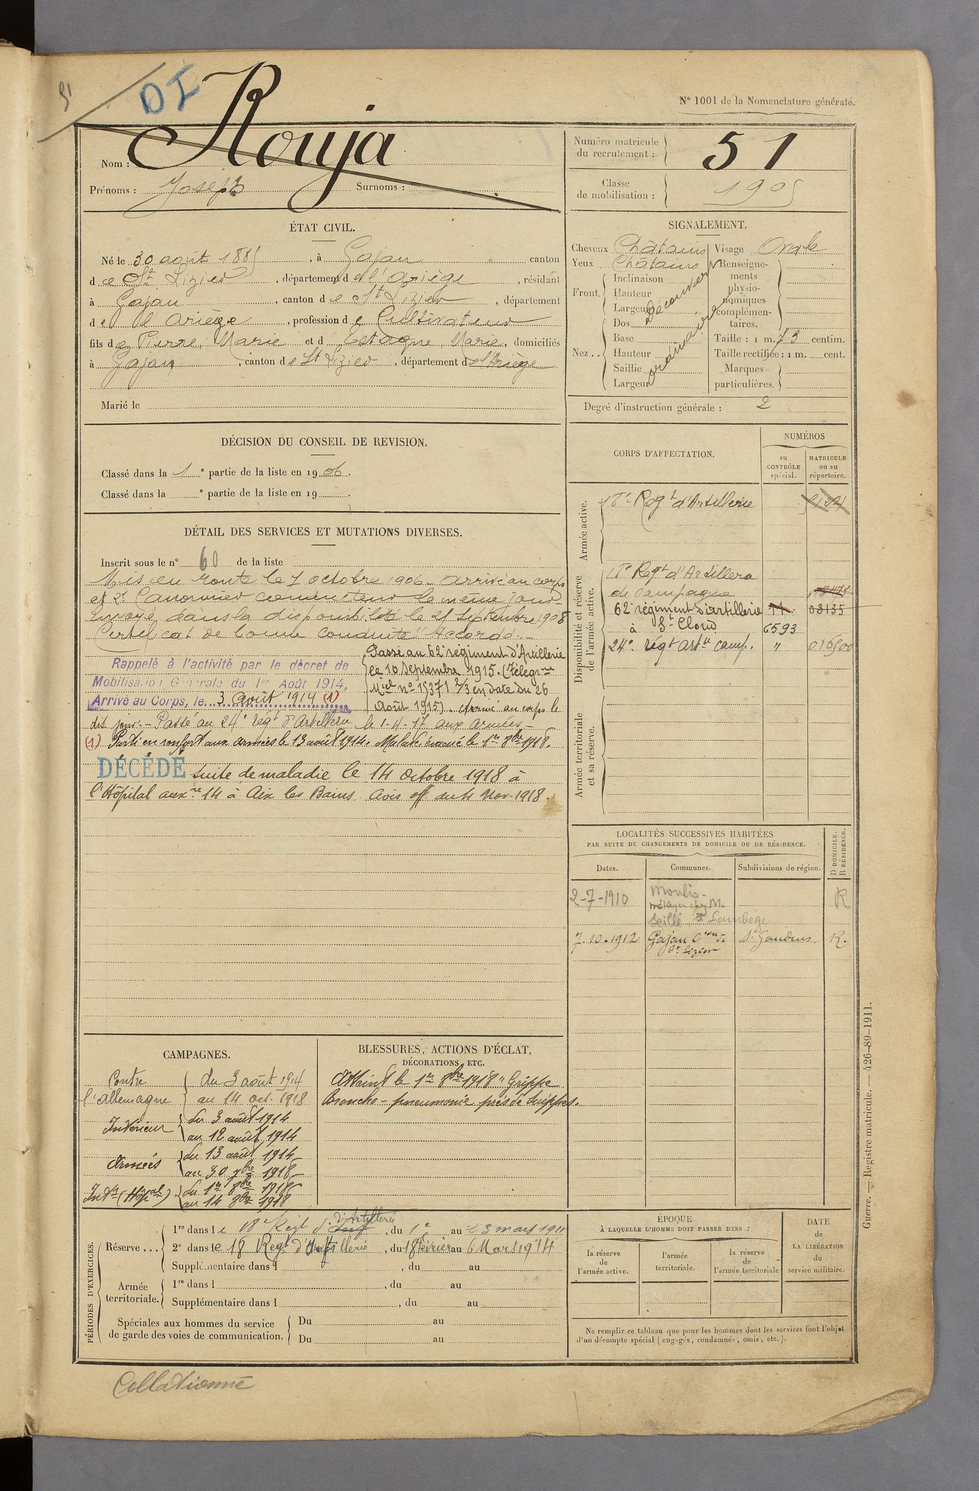 51
DI
N° 1001 de la Nomenclature générale.
Nom : Rouja
Prénoms : Joseph Surnoms :
Numéro matricule du recrutement : 51
Classe de mobilisation : 1905
ÉTAT CIVIL.
Né le 30 août 1885, à Gajan canton
de St Lizier, département de l'Ariège, résidant
à Gajan, canton de St Lizier, département
de l'Ariège, profession de Cultivateur
fils de Pierre, Marie et d Estaque, Marie, domiciliés
à Gajan, canton de St Lizier, département de l'Ariège
Marié le
SIGNALEMENT.
Cheveux Châtains Visage Ovale
Yeux Châtains
Front.
Inclinaison
Hauteur
Largeur
Dos
Nez..
Base
Hauteur
Saillie
Largeur
ordinaire
Renseignements physionomiques complémentaires.
Taille : 1 m. 73 centim.
Taille rectifiée : 1 m. cent.
Marques particulières.
Degré d'instruction générale : 2
DÉCISION DU CONSEIL DE REVISION.
Classé dans la 1e partie de la liste en 1906.
Classé dans la e partie de la liste en 19 .
DÉTAIL DES SERVICES ET MUTATIONS DIVERSES.
Inscrit sous le n° 60 de la liste
Mis en route le 7 octobre 1906 - arrivé au corps
et 2e Canonnier conducteur le même jour
Envoyé dans la disponibilité le 25 septembre 1908
Certificat de bonne conduite "Accordé" -
Rappelé à l'activité par le décret de
Mobilisation Générale du 1er Août 1914,
Arrivé au Corps, le 3 Août 1914 (1)
Passé au 62e régiment d'Artillerie
le 10 Septembre 1915. (Télégr.
Miel n° 15371 2/3 en date du 26
Août 1915). arrivé au corps le
dit jour. - Passé au 24e Régt d'Artillerie le 1-4-17 aux armées -
(1) Parti en renfort aux armées le 13 août 1914. Malade évacué le 1er 8bre 1918.
DÉCÉDÉ suite de maladie le 14 octobre 1918 à
l'Hôpital auxre 14 à Aix les Bains. Avis off du 4 Nov. 1918.
CORPS D'AFFECTATION.
NUMÉROS
au CONTRÔLE spécial.
MATRICULE ou au répertoire.
Armée active.
18e Régt d'Artillerie
Disponibilité et réserve de l'armée active.
18e Régt d'Artillerie
de campagne
62e régiment d'artillerie 08135
à St Cloud 6593
24e régt artie camp. " 016500
Armée territoriale et sa réserve.
LOCALITÉS SUCCESSIVES HABITÉES
PAR SUITE DE CHANGEMENTS DE DOMICILE OU DE RÉSIDENCE.
D DOMICILE. R RÉSIDENCE.
Dates. Communes. Subdivisions de région.
2-7-1910 Moulis - métayer chez M. R
7-10-1912 Gajan Con de St Lizier St Gaudens. R.
CAMPAGNES.
Contre l'allemagne du 3 août 1914 au 14 oct. 1918
Intérieur du 3 août 1914 au 12 août 1914
Armées du 13 août 1914 au 30 7bre 1918
Intr (Hôpal) du 1er 8bre 1918 au 14 8bre 1918
BLESSURES, ACTIONS D'ÉCLAT,
DÉCORATIONS, ETC.
Atteint le 1er 8bre 1918 "Grippe
Broncho-pneumonie près de Suippes.
PÉRIODES D'EXERCICES.
Réserve...
1re dans le 18e Régt d'Artillerie, du 1er au 23 mars 1911
2e dans le 18 Régt d'Artillerie, du 18 février au 6 Mars 1914
Supplémentaire dans l , du au
Armée territoriale.
1re dans l , du au
Supplémentaire dans l , du au
Spéciales aux hommes du service
de garde des voies de communication.
Du au
Du au
ÉPOQUE
À LAQUELLE L'HOMME DOIT PASSER DANS :
la réserve de l'armée active.
l'armée territoriale.
la réserve de l'armée territoriale
DATE DE LA LIBÉRATION du service militaire.
Ne remplir ce tableau que pour les hommes dont les services font l'objet
d'un décompte spécial (engagés, condamnés, omis, etc.).
Guerre. — Registre matricule. — 426-89-1911.
Collationné